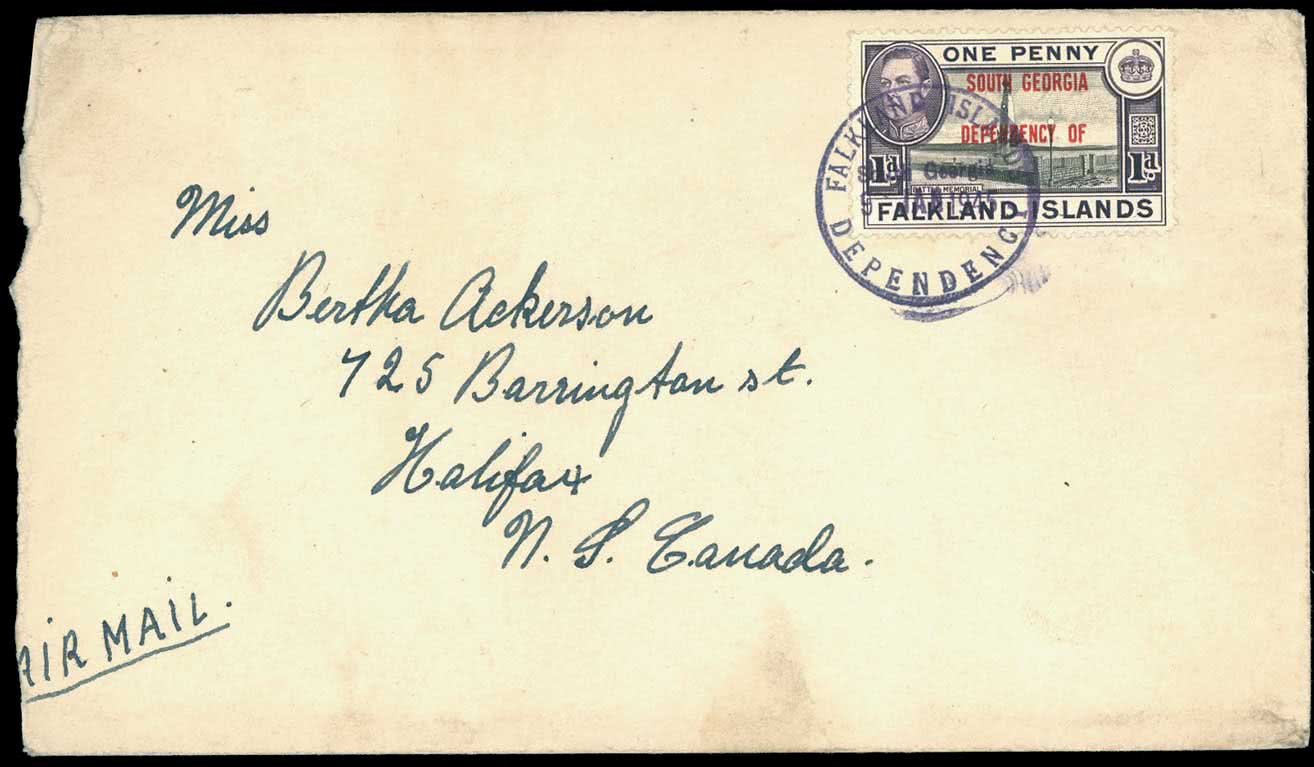 ONE PENNY
SOUTH GEORGIA
DEPENDENCY OF
1d 1d
BATTLE MEMORIAL
FALKLAND ISLANDS
FALKLAND ISLANDS
South Georgia
1945
DEPENDENCY
Miss
Bertha Ackerson
725 Barrington st.
Halifax
N. S. Canada.
AIR MAIL.